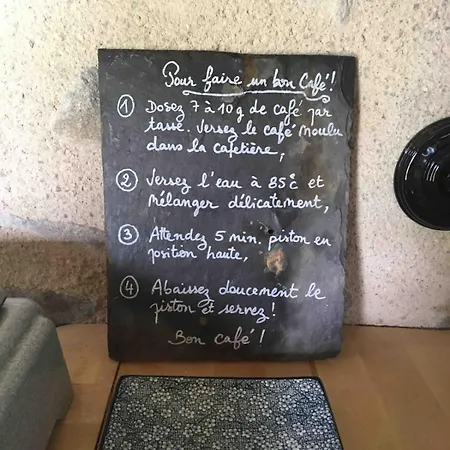 Pour faire un bon Café!
① Dosez 7 à 10g de café par
tasse. Versez le café Moulu
dans la cafetière,
② Versez l'eau à 85°c et
mélanger délicatement,
③ Attendez 5 min, piston en
position haute,
④ Abaissez doucement le
piston et servez!
Bon café!